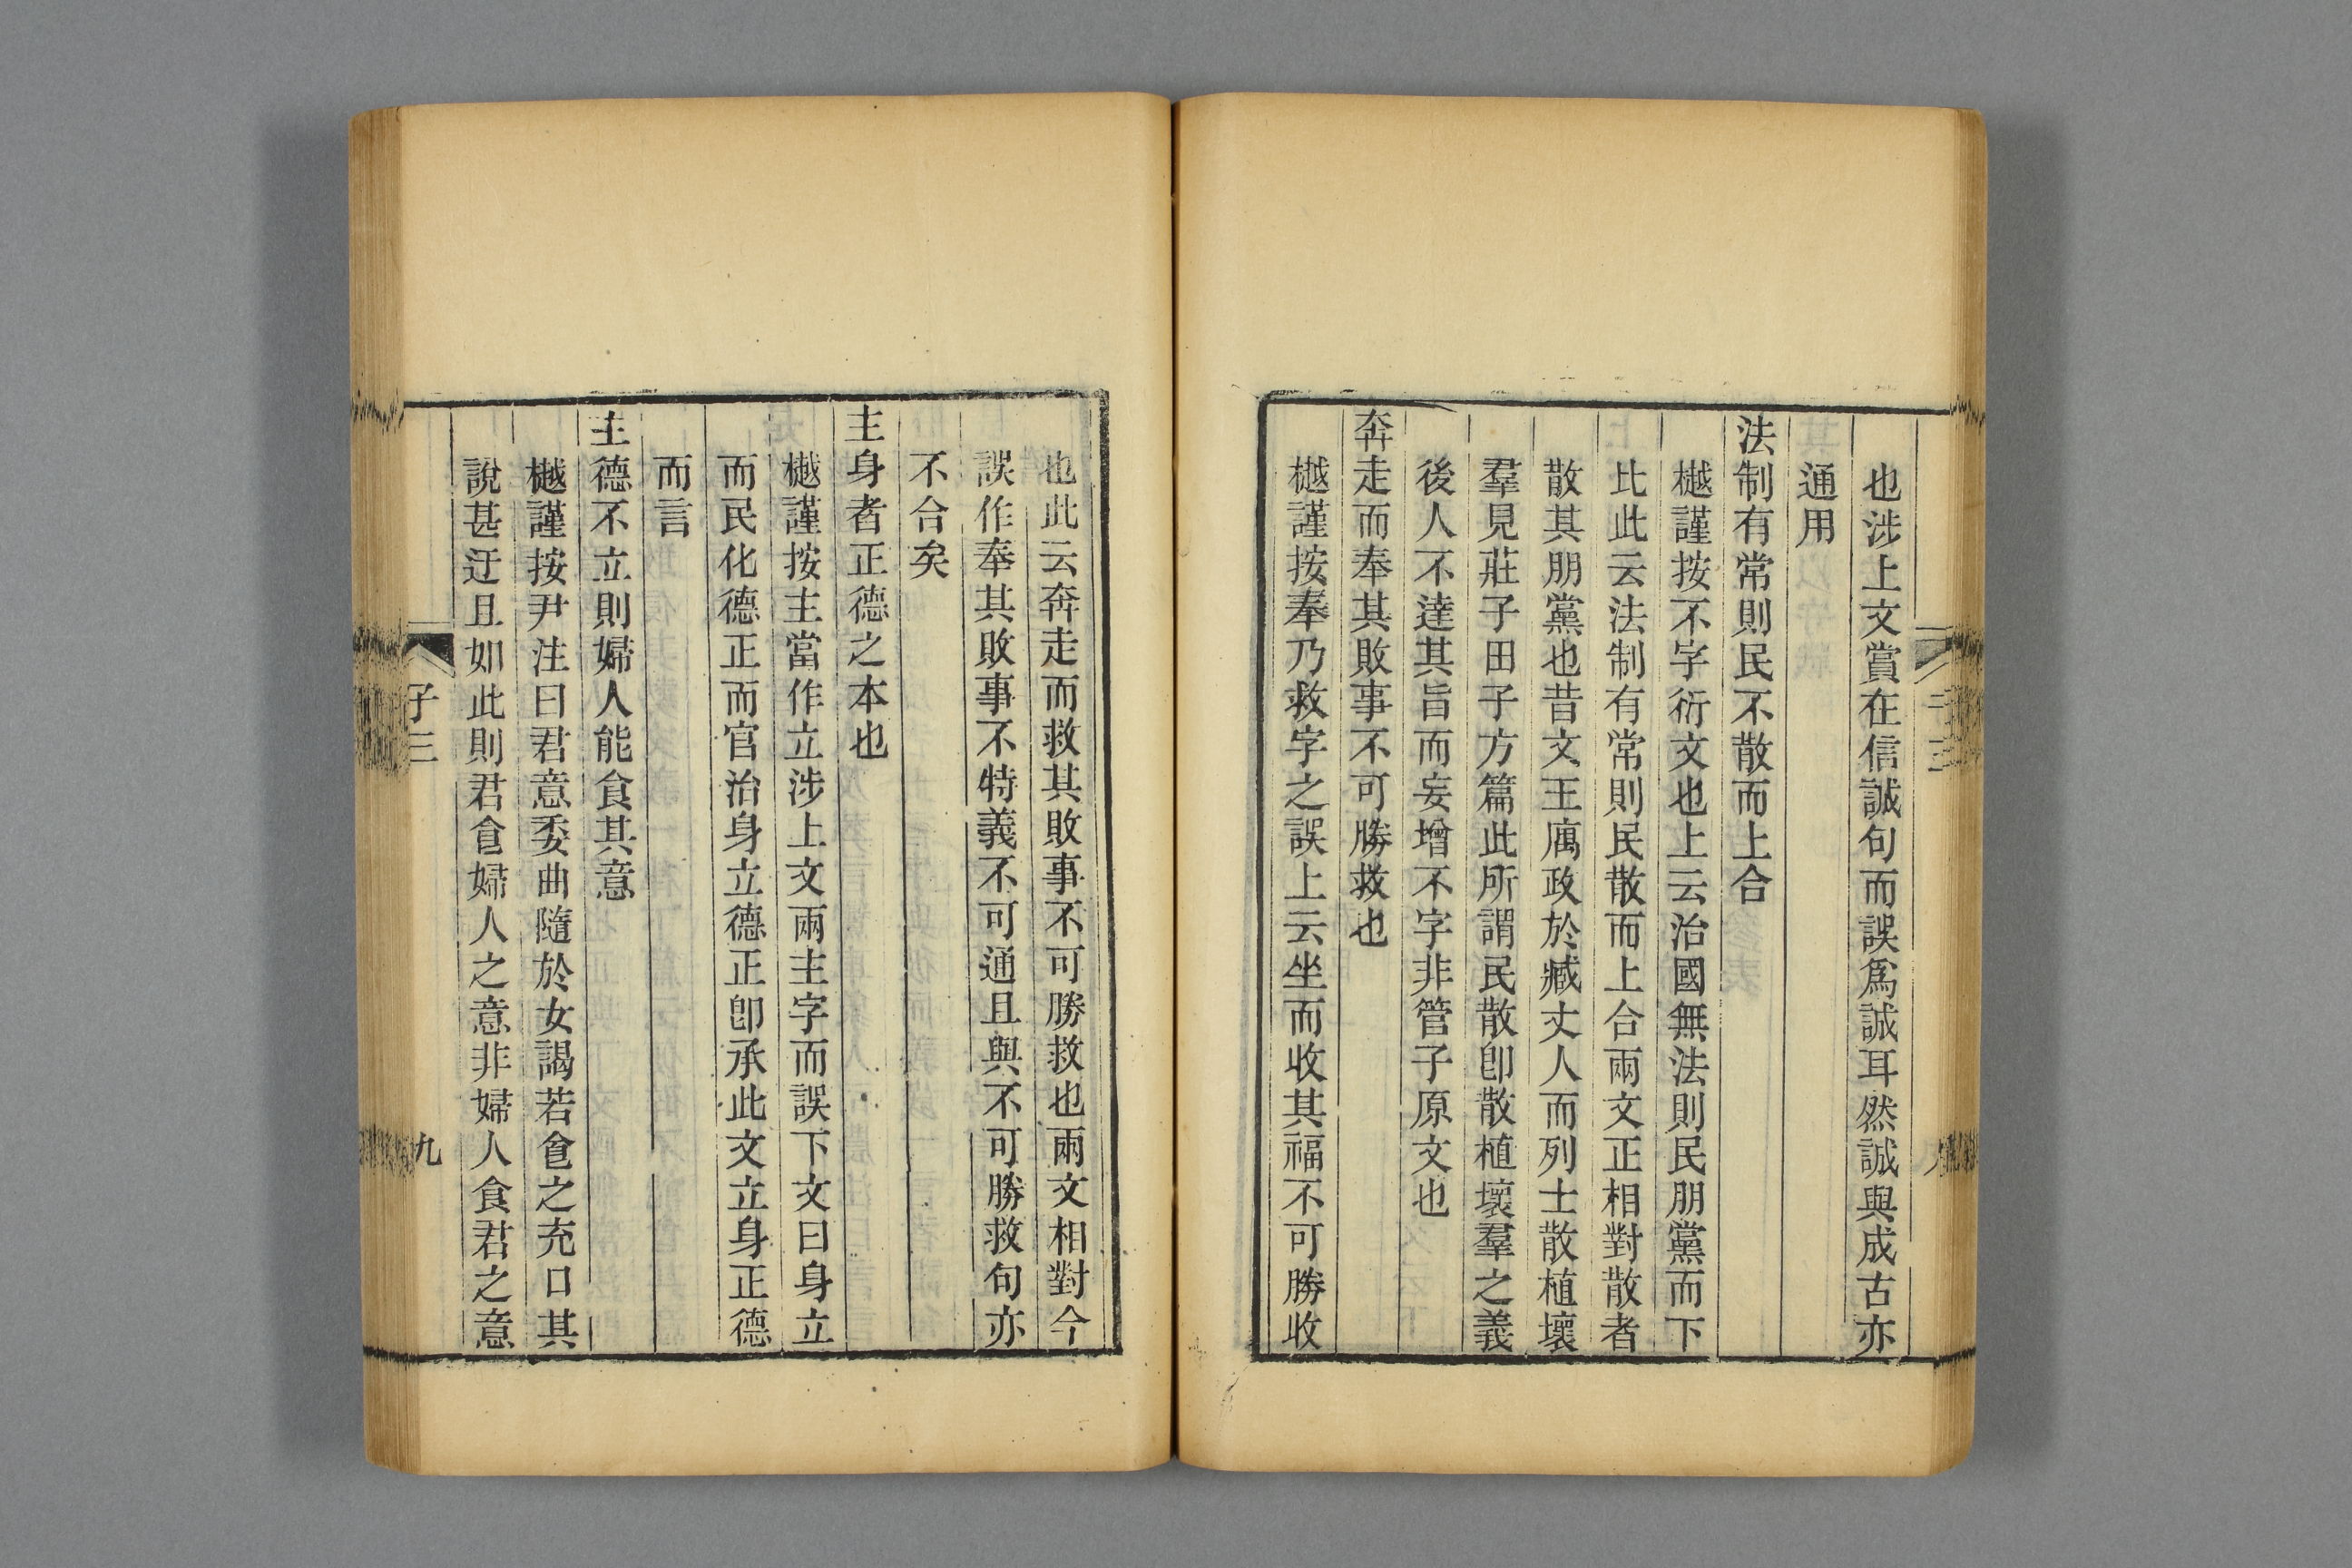 也涉上文賞在信誠句而誤爲誠耳然誠與成古亦
通用
法制有常則民不散而上合
樾謹按不字衍文也上云治國無法則民朋黨而下
比此云法制有常則民散而上合兩文正相對散者
散其朋黨也昔文王寓政於臧丈人而列士散植壞
羣見莊子田子方篇此所謂民散卽散植壞羣之義
後人不達其旨而妄增不字非管子原文也
奔走而奉其敗事不可勝救也
樾謹按奉乃救字之誤上云坐而收其福不可勝收
也此云奔走而救其敗事不可勝救也兩文相對今
誤作奉其敗事不特義不可通且與不可勝救句亦
不合矣
主身者正德之本也
樾謹按主當作立涉上文兩主字而誤下文曰身立
而民化德正而官治身立德正卽承此文立身正德
而言
主德不立則婦人能食其意
樾謹按尹注曰君意委曲隨於女謁若食之充口其
說甚迂且如此則君食婦人之意非婦人食君之意
子三
九